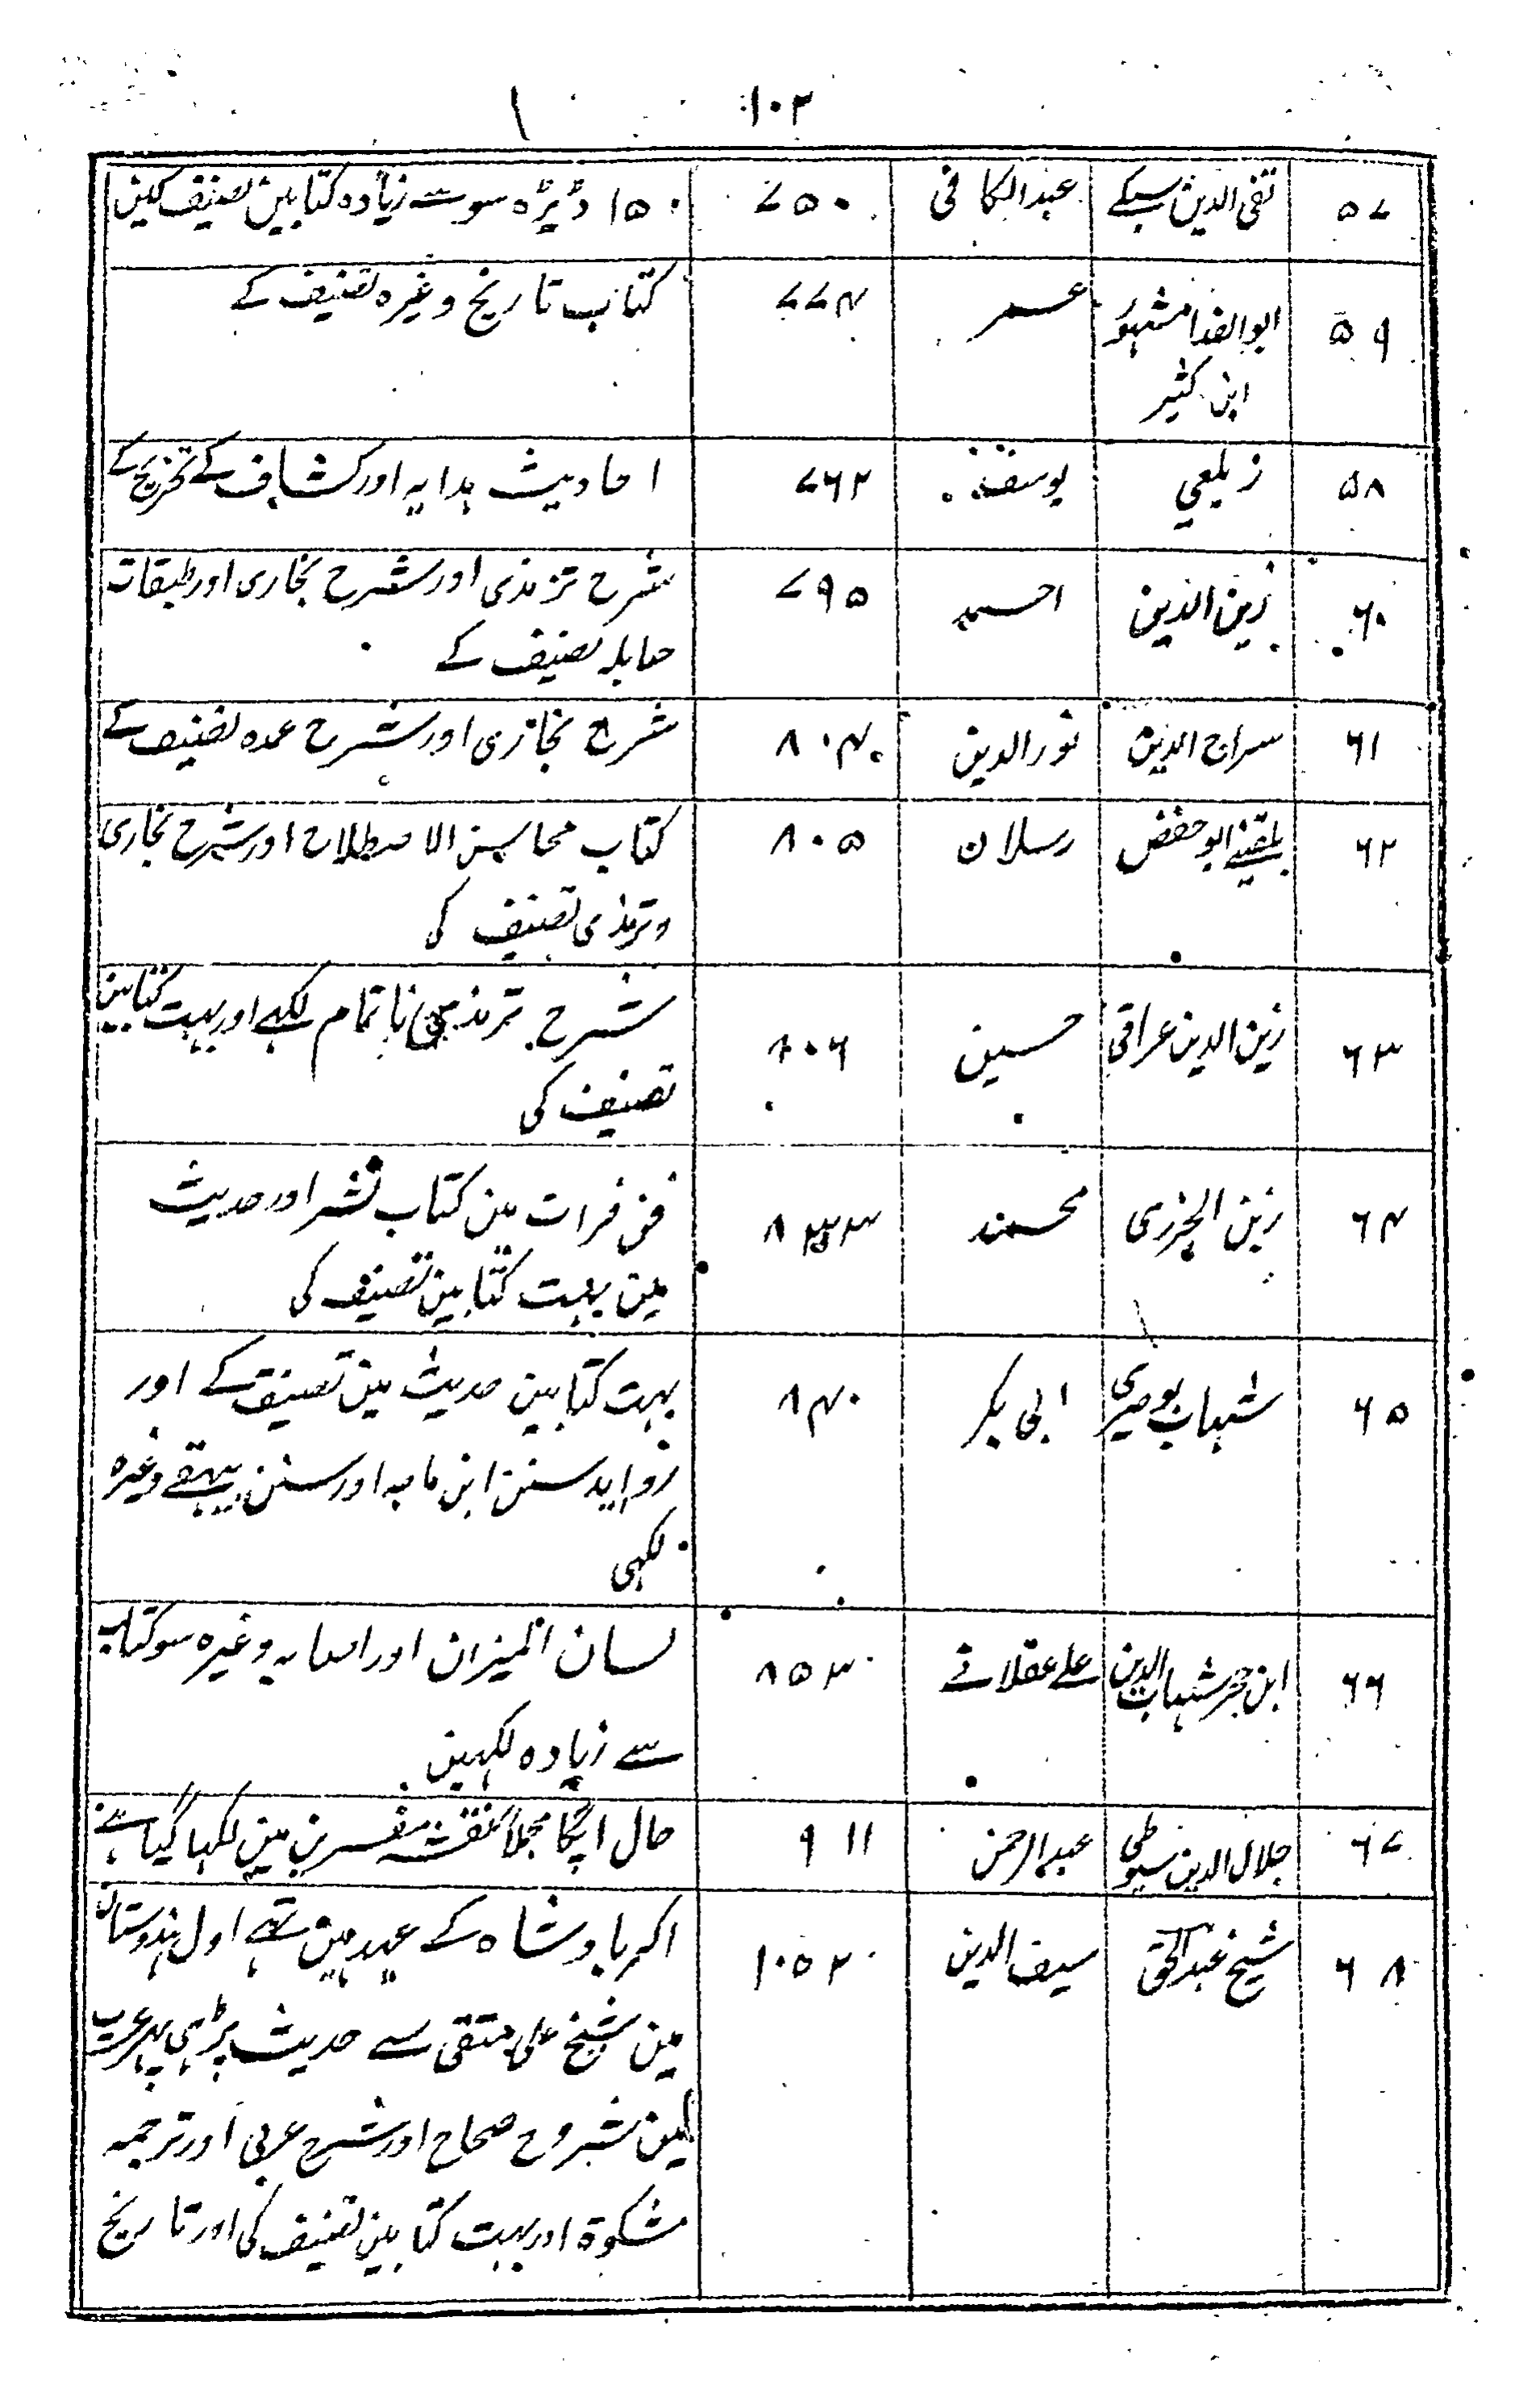 ۱۰۲
۵۷ تقی الدین سبکے عبدالکافی ۷۵۰ ۱۵۰ ڈیڑہ سو سے زیادہ کتابین تصنیف کین
۵۹ ابوالفدا مشہور عمر ۷۷۴ کتاب تاریخ وغیرہ تصنیف کے
ابن کثیر
۵۸ زیلعی یوسف ۷۶۲ احادیث ہدایہ اور کشاف کے تخریج کے
۶۰ زین الدین احمد ۷۹۵ شرح ترمذی اور شرح بخاری اور طبقات
حنابلہ تصنیف کے
۶۱ سراج الدین نور الدین ۸۰۴ شرح بخاری اور شرح عمدہ تصنیف کے
۶۲ بلقینے ابو حفض رسلان ۸۰۵ کتاب محاسن الاصطلاح اور شرح بخاری
و ترمذی تصنیف کی
۶۳ زین الدین عراقی حسین ۸۰۶ شرح ترمذی ناتمام لکہے اور بہت کتابین
تصنیف کی
۶۴ زین الجزری محمد ۸۳۳ فن قرات مین کتاب نشر اور حدیث
مین بہت کتابین تصنیف کی
۶۵ شہاب بوصیری ابی بکر ۸۴۰ بہت کتابین حدیث مین تصنیف کے اور
زواید سنن ابن ماجہ اور سنن بیہقے وغیرہ
لکہی
۶۶ ابن حجر شہاب الدین علے عقلانے ۸۵۳ لسان المیزان اور اصابہ وغیرہ سو کتاب
سے زیادہ لکہین
۶۷ جلال الدین سیوطی عبدالرحمن ۹۱۱ حال اپکا مجملاً نقشہ مفسرین مین لکہا گیا ہے
۶۸ شیخ عبدالحق سیف الدین ۱۰۵۲ اکبر بادشاہ کے عہد مین تہے اول ہندوستان
مین شیخ علی متقی سے حدیث پڑہی پہر عرب
مین شروح صحاح اور شرح عربی اور ترجمہ
مشکوۃ اور بہت کتابین تصنیف کی اور تاریخ